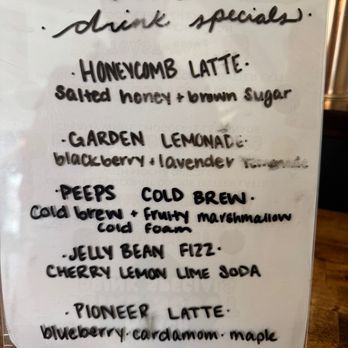 · drink specials ·
· HONEYCOMB LATTE ·
salted honey + brown sugar
· GARDEN LEMONADE ·
blackberry + lavender lemonade
· PEEPS COLD BREW ·
cold brew + fruity marshmallow
cold foam
· JELLY BEAN FIZZ ·
CHERRY LEMON LIME SODA
· PIONEER LATTE ·
blueberry · cardamom · maple